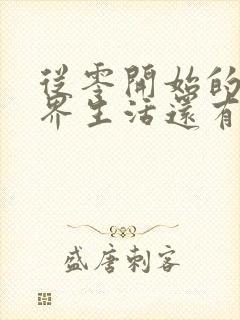 從零開始的
界生活還有
盛唐刺客